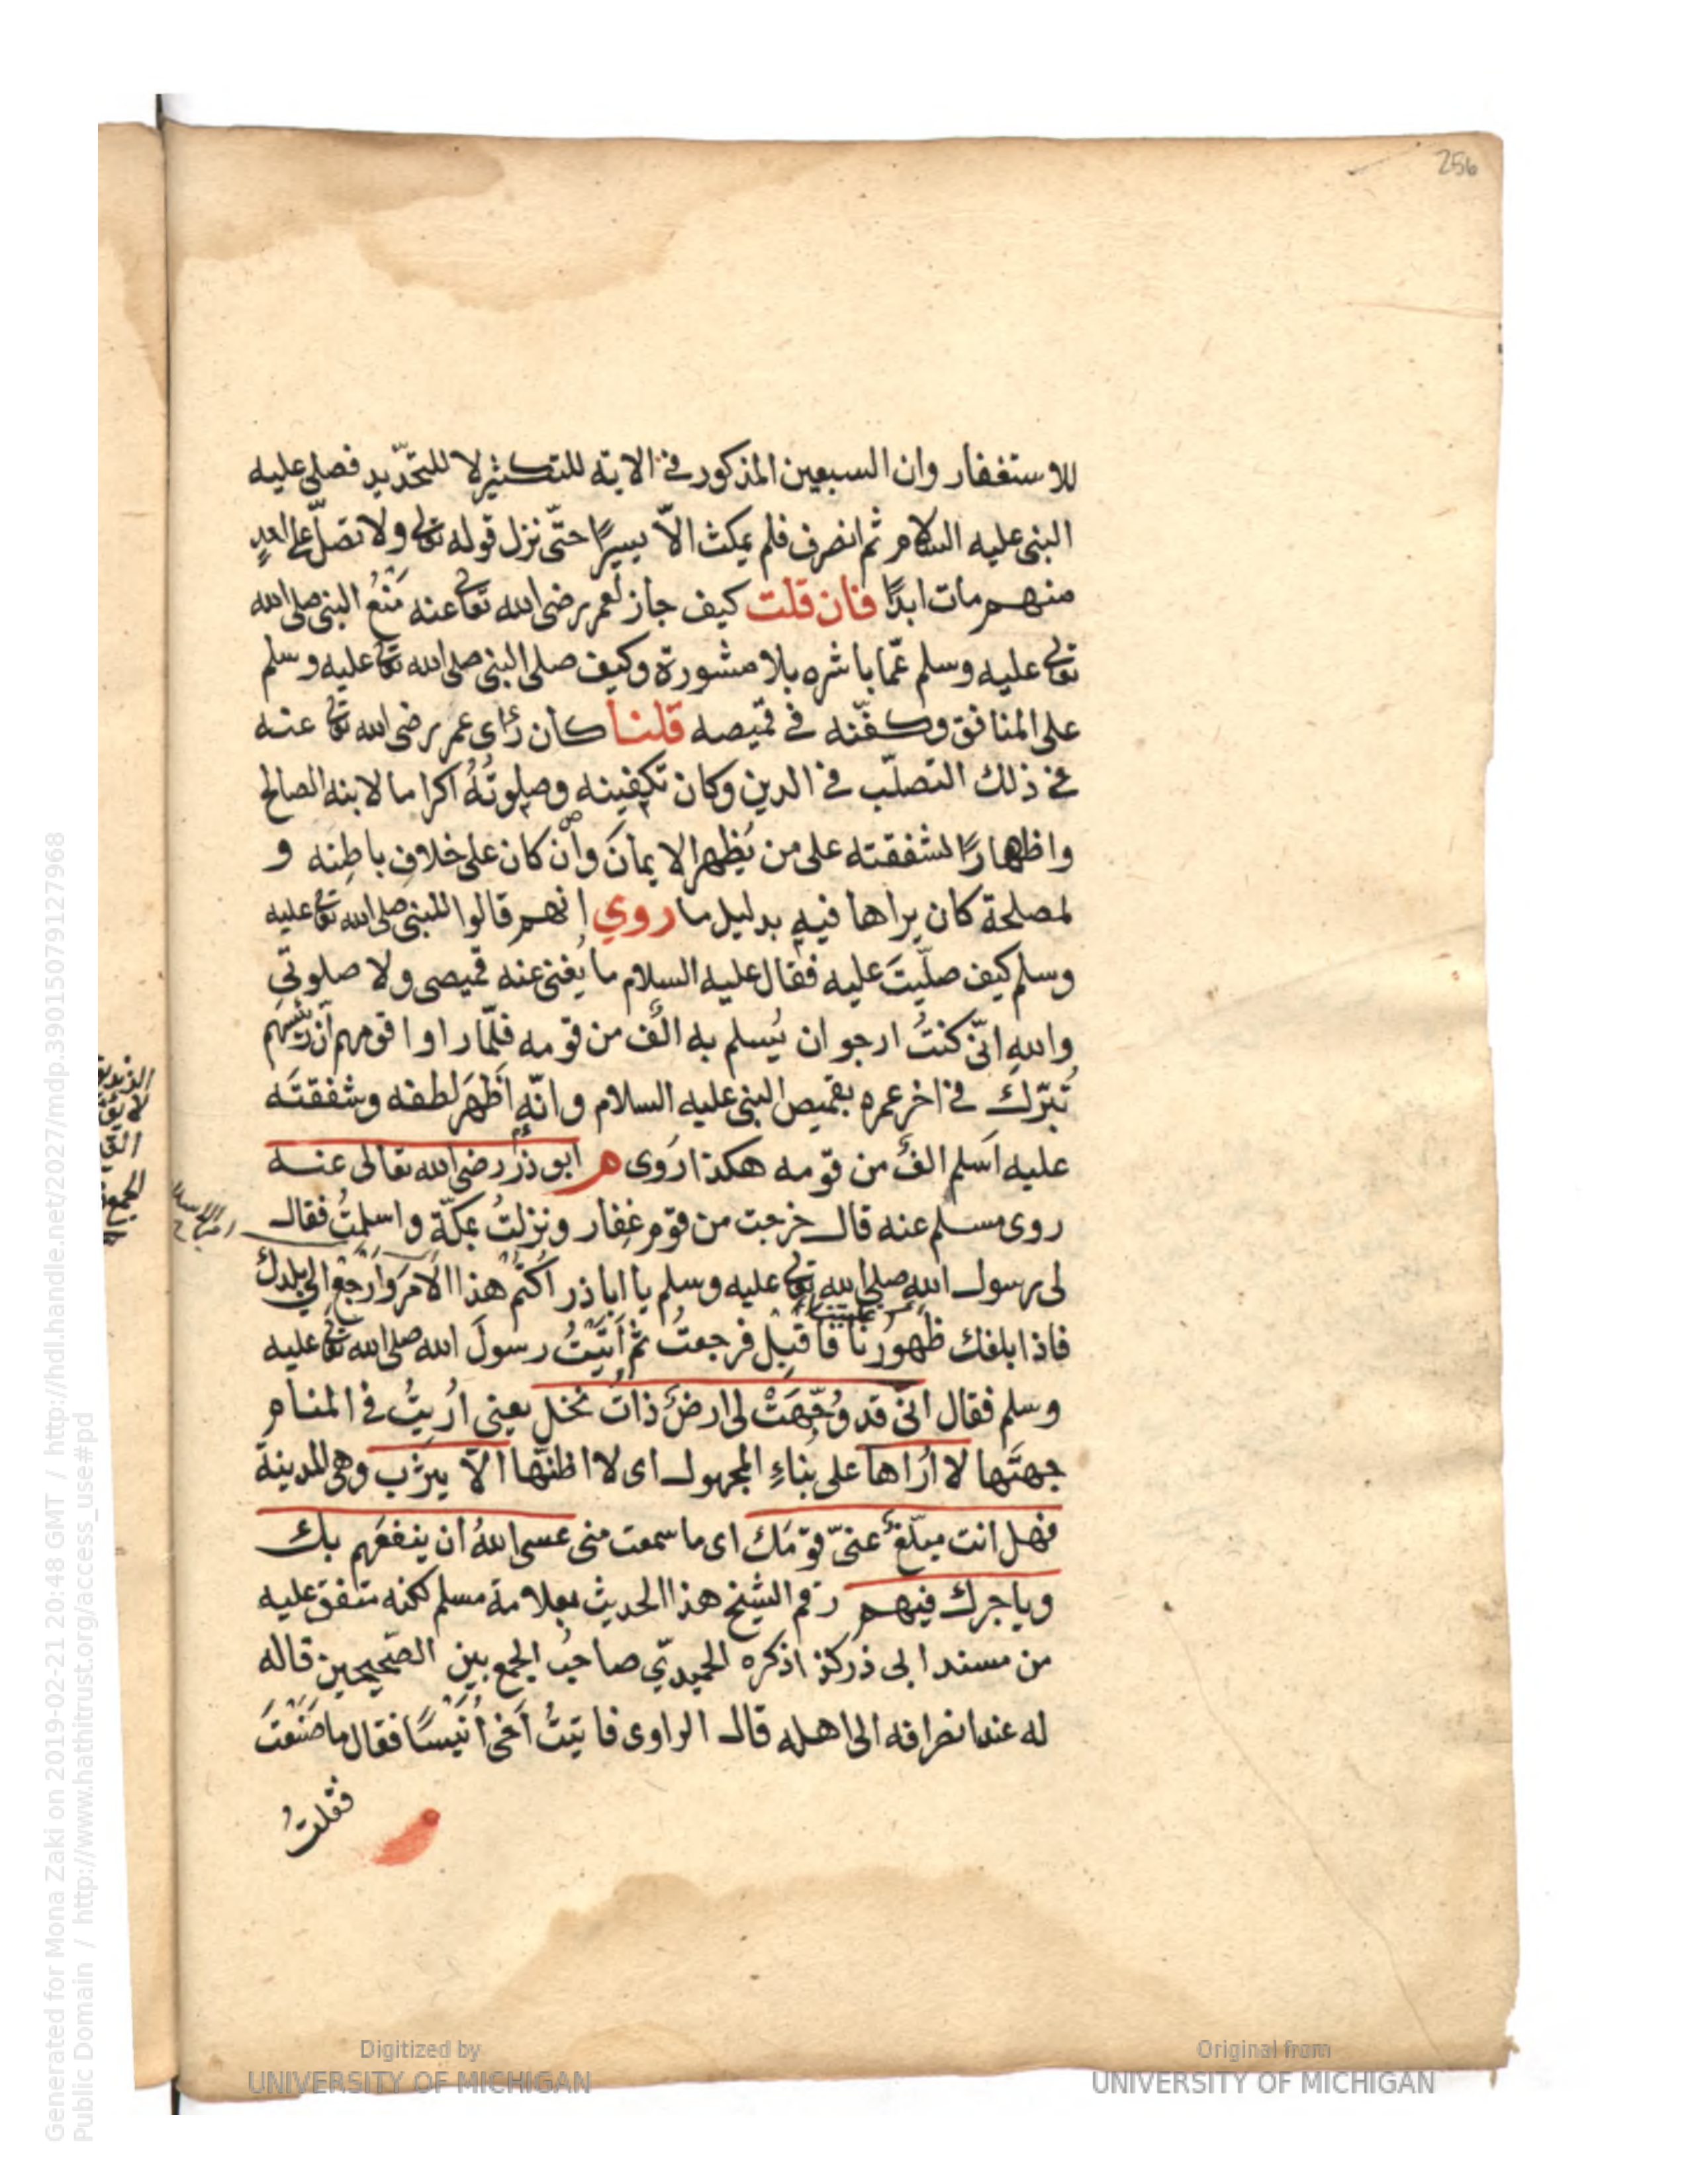 256
للاستغفار وان السبعين المذكور في الاية للتكثير لا للتحديد فصلى عليه
النبى عليه السلام ثم انصرف فلم يمكث الّا يسيرًا حتّى نزل قوله تعالى ولا تصلّ على احدٍ
منهم مات ابدًا فان قلت كيف جاز لعمر رضى الله تعالى عنه مَنْعُ النبى صلى الله
تعالى عليه وسلم عمّا باشره بلا مشورة وكيف صلى النبى صلى الله تعالى عليه وسلم
على المنافق وكفّنه في قميصه قلنا كان رأى عمر رضى الله تعالى عنه
في ذلك التصلّب في الدين وكان تكفينه وصلوتُهُ اكراما لابنه الصالح
واظهارًا لشفقته على من يُظهر الايمانَ وان كان على خلافِ باطِنه و
لمصلحة كان يراها فيه بدليل ما روي انهم قالوا للنبى صلى الله تعالى عليه
وسلم كيف صلّيتَ عليه فقال عليه السلام ما يُغنى عنه قميصى ولا صلوتي
والله انّى كنتُ ارجو ان يُسلم به الفٌ من قومه فلمّا راوا قومهم أنّ رئيسهم
تبرّك في اخر عمره بقميص النبى عليه السلام وانّه أَظْهَرَ لطفه وشفقتَه
عليه اَسلم الفٌ من قومه هكذا رَوى هر ابو ذرّ رضى الله تعالى عنه
روى مسلم عنه قال خرجت من قوم غِفار ونزلتُ بمكّة واسلمتُ فقال
لى رسول الله صلى الله تعالى عليه وسلم يا ابا ذر اكتُمْ هذا الامرَ وارْجِعْ الى بلدك
فاذا بلغك ظهورنا فاقبل فرجعتُ ثم أتَيْتُ رسولَ الله صلى الله تعالى عليه
وسلم فقال انى قد وُجّهَتْ لى ارضٌ ذاتُ نخل يعنى اُرِيتُ في المنام
جهتَها لا اُرَاها على بناءِ المجهول اى لا اظنّها الّا يثرب وهى المدينة
فهل انت مبلّغٌ عنّى قومَك اى ما سمعت منى عسى اللهُ ان ينفعَهم بك
وياجرك فيهم رقم الشيخ هذا الحديث بعلامة مسلم لكنه متفق عليه
من مسند ابى ذر كذا ذكره الحميديّ صاحبُ الجمع بين الصّحيحين قاله
له عند انصرافه الى اهله قال الراوى فاتيتُ أَخى أُنَيْسًا فقال ما صَنَعْتَ
فقلتُ
Digitized by
UNIVERSITY OF MICHIGAN
Original from
UNIVERSITY OF MICHIGAN
Generated for Mona Zaki on 2019-02-21 20:48 GMT / http://hdl.handle.net/2027/mdp.39015079127968
Public Domain / http://www.hathitrust.org/access_use#pd